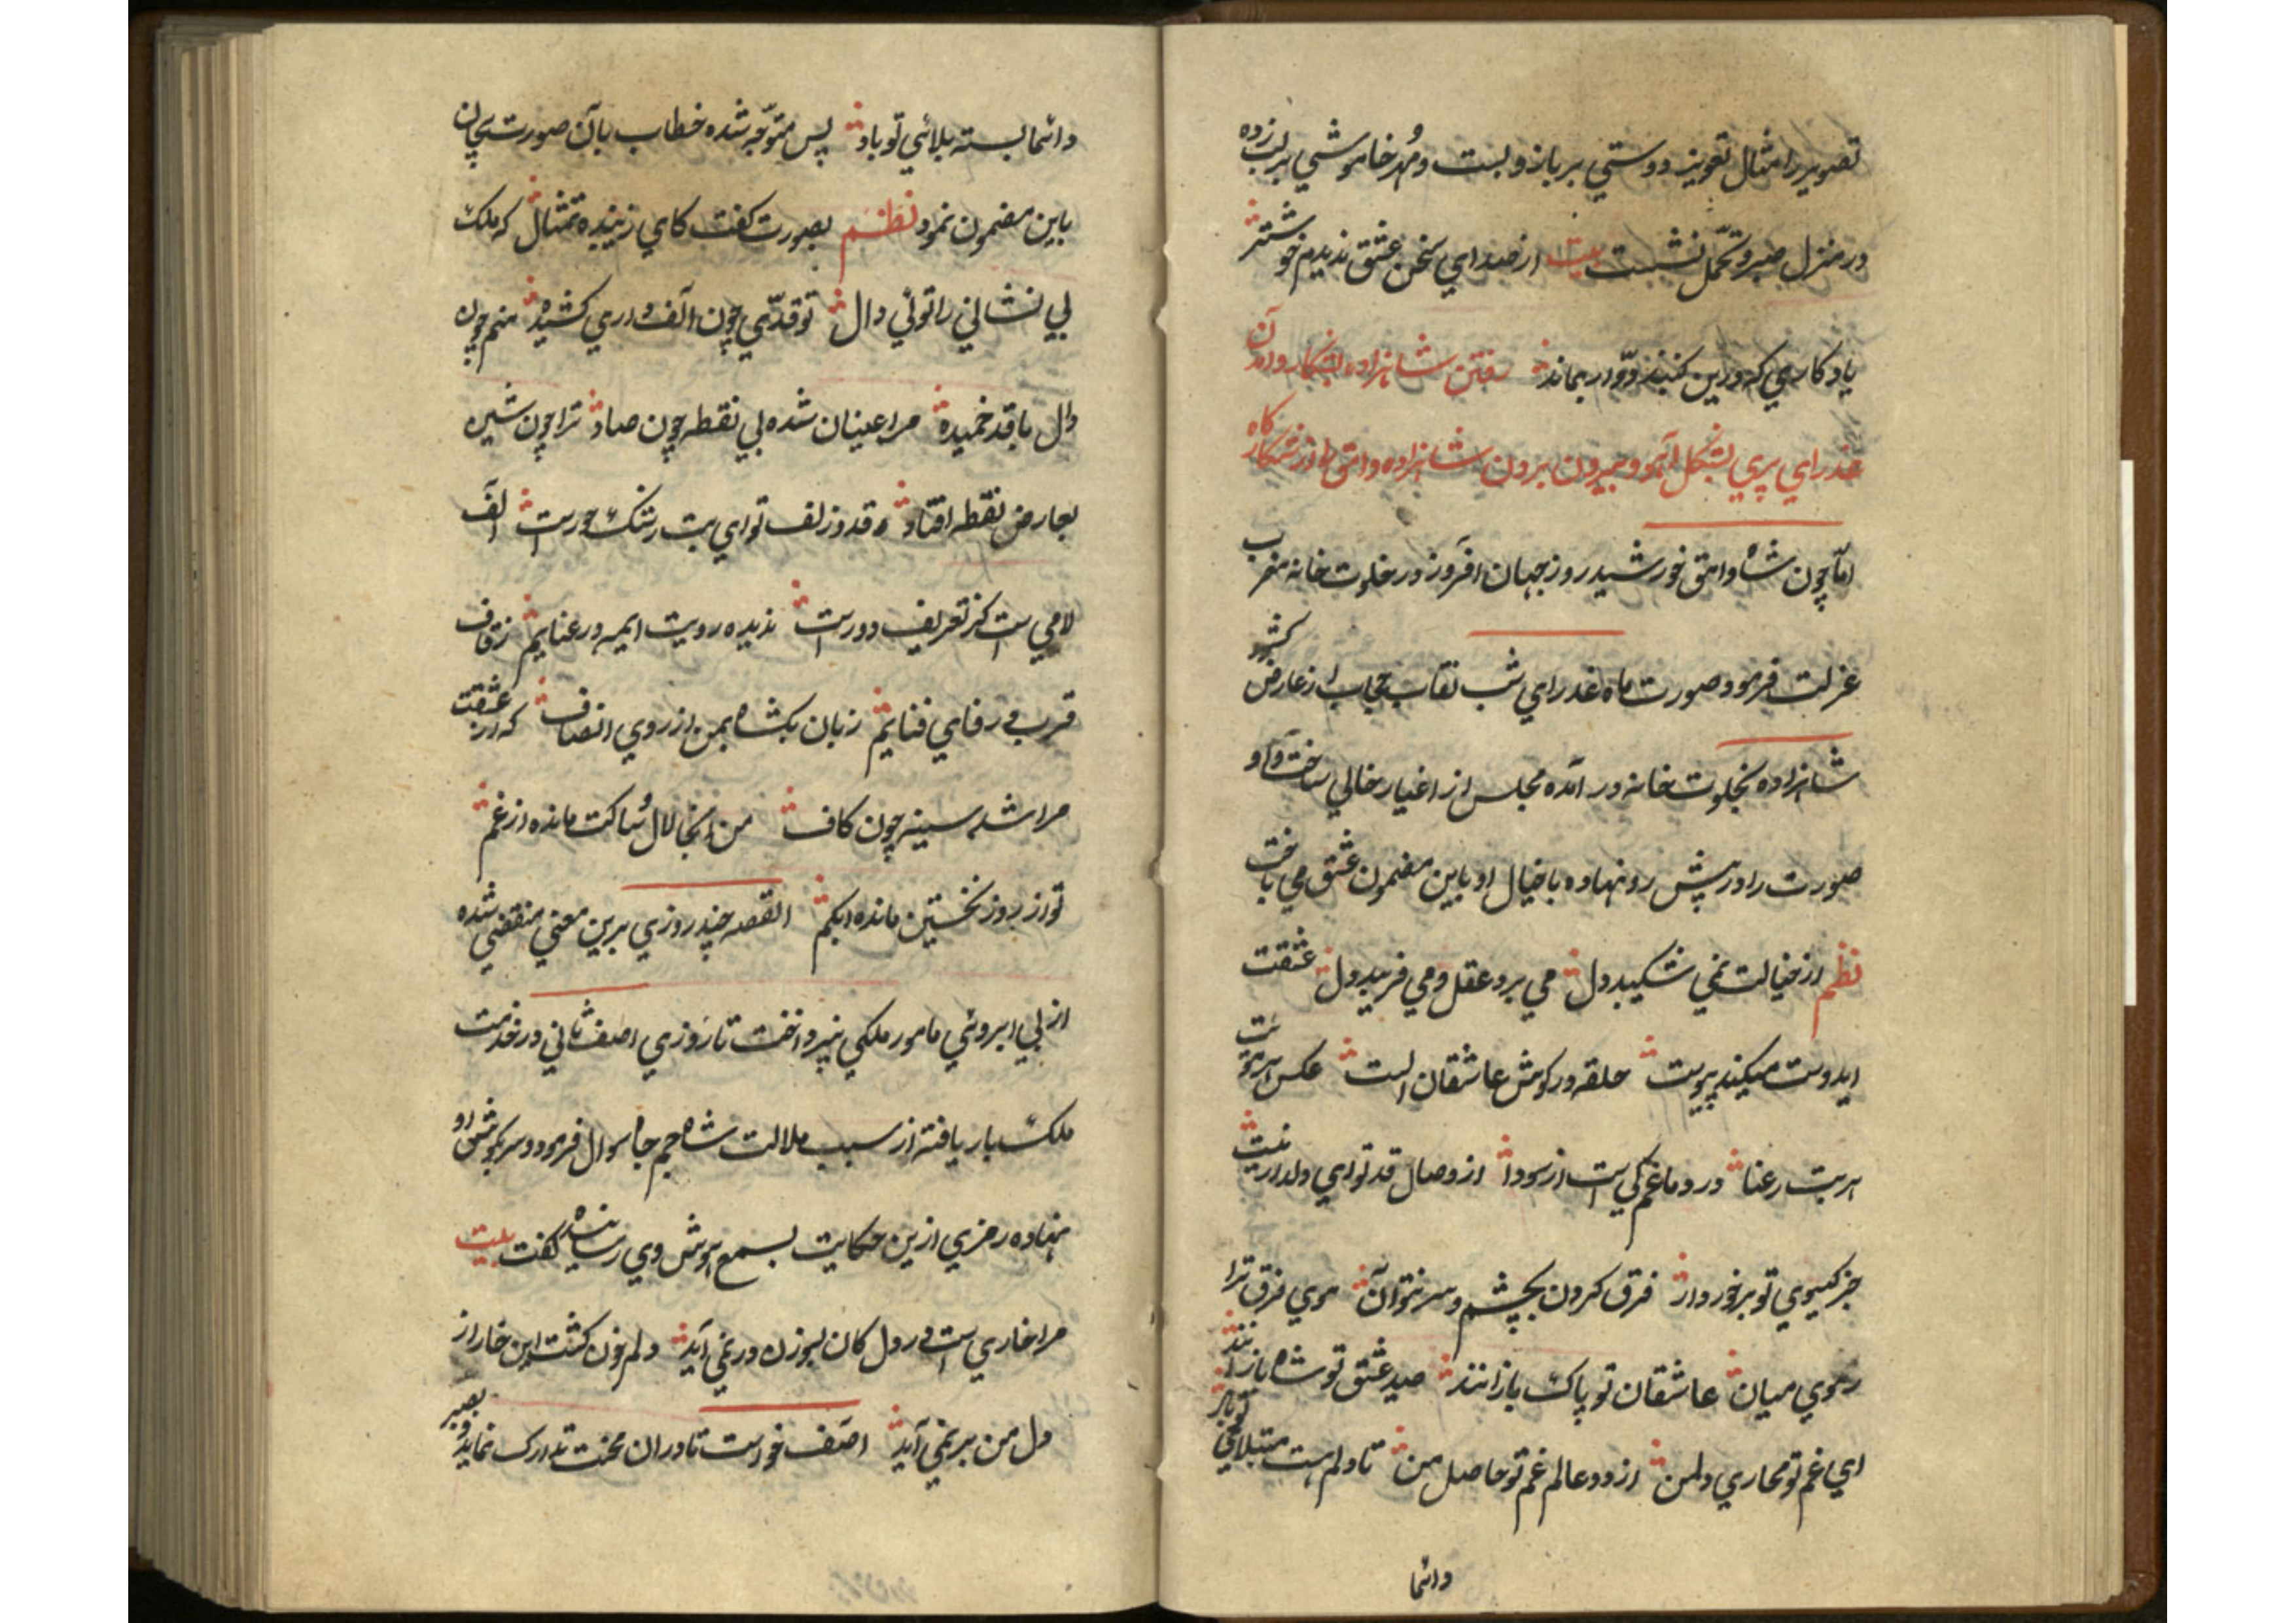 تصویر را مثال تعویذ دوستي بر بازو بست و مُهر خاموشي بر لب زده
در منزل صبر و تحمّل نشست بیت از صداي سخن عشق ندیدم خوشتر
یادکاري که درین کنبد دوّار بماند رفتن شاهزاده بشکار و آمدن آن
عذراي پري بشکل آهو و بیرون بردن شاهزاده وامق را از شکارکاه
امّا چون شاه وامق خورشید روز جهان افروز در خلوت خانه مغرب
عزلت فرمود و صورت ماه عذراي شب نقاب حجاب از عارض کشود
شاهزاده بخلوت خانه در آمده مجلس از اغیار خالي ساخت و او
صورت را در پیش رو نهاده با خیال او باین مضمون عشق مي باخت
نظم از خیالت نمي شکیبد دل مي برد عقل و مي فریبد دل عشقت
ایدوست میکند پیوست حلقه در کوش عاشقان الست عکس ابروت
هر بت رعنا در دماغم کي است از سودا از وصال قد تو اي دلدار نیست
جز کیسوي تو برخوردار فرق کردن بچشم و سر نتوان موي فرق ترا
ز موي میان عاشقان تو پاک بازانند صید عشق تو شاه بازانند
اي غم تو مجاري دل من از دو عالم غم تو حاصل من تا دلم هست مبتلائي تو باد
دائما
دائما بسته بلائي تو باد پس متوّجه شده خطاب بآن صورت بیجان
باین مضمون نمود نظم بصورت کفت کاي زیبنده تمثال که ملک
بي نشاني را توئي دال تو قدّي چون الف داري کشیده منم چون
دال با قد خمیده مرا عینان شده بي نقطه چون صاد ترا چون شین
بعارض نقطه افتاد قد و زلف تو اي بت رشک حورست الف
لامي است کز تعریف دورست ندیده رویت ایمه در عنایم ز قاف
قرب در فاي فنایم زبان بکشا بمن از روي انصاف که از عشقت
مرا شد سینه چون کاف من اینجا لال و ساکت مانده از غم
تو از روز نخستین مانده ابکم القصه چند روزي برین معني منقضي شده
از بي ابروئي مامور ملکي نپرداخت تا روزي اصف ثاني در خدمت
ملک بار یافته از سبب ملالت شاه جم جاه سوال فرمود و سر بکوش او
نهاده رمزي ازین حکایت بسمع هوش وي رسانیده کفت بیت
مرا خاري است در دل کان بسوزن در نمي آید دلم خون کشت و این خار از
دل من بر نمي آید اصف خواست تا دران محنت تدارک نماید